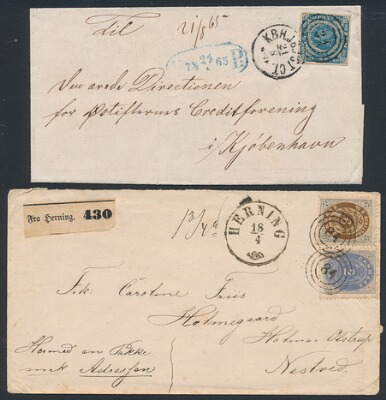 Til
21/8 65
KBH.
Den ærede Directionen
for Østifternes Creditforening
i Kjöbenhavn
Fra Herning. 430
HERNING
18
4
84
84
Frk: Caroline Friis
Holmegaard
Holme Olstrup
Nestved
Hermed en Pakke
mrk Adressen